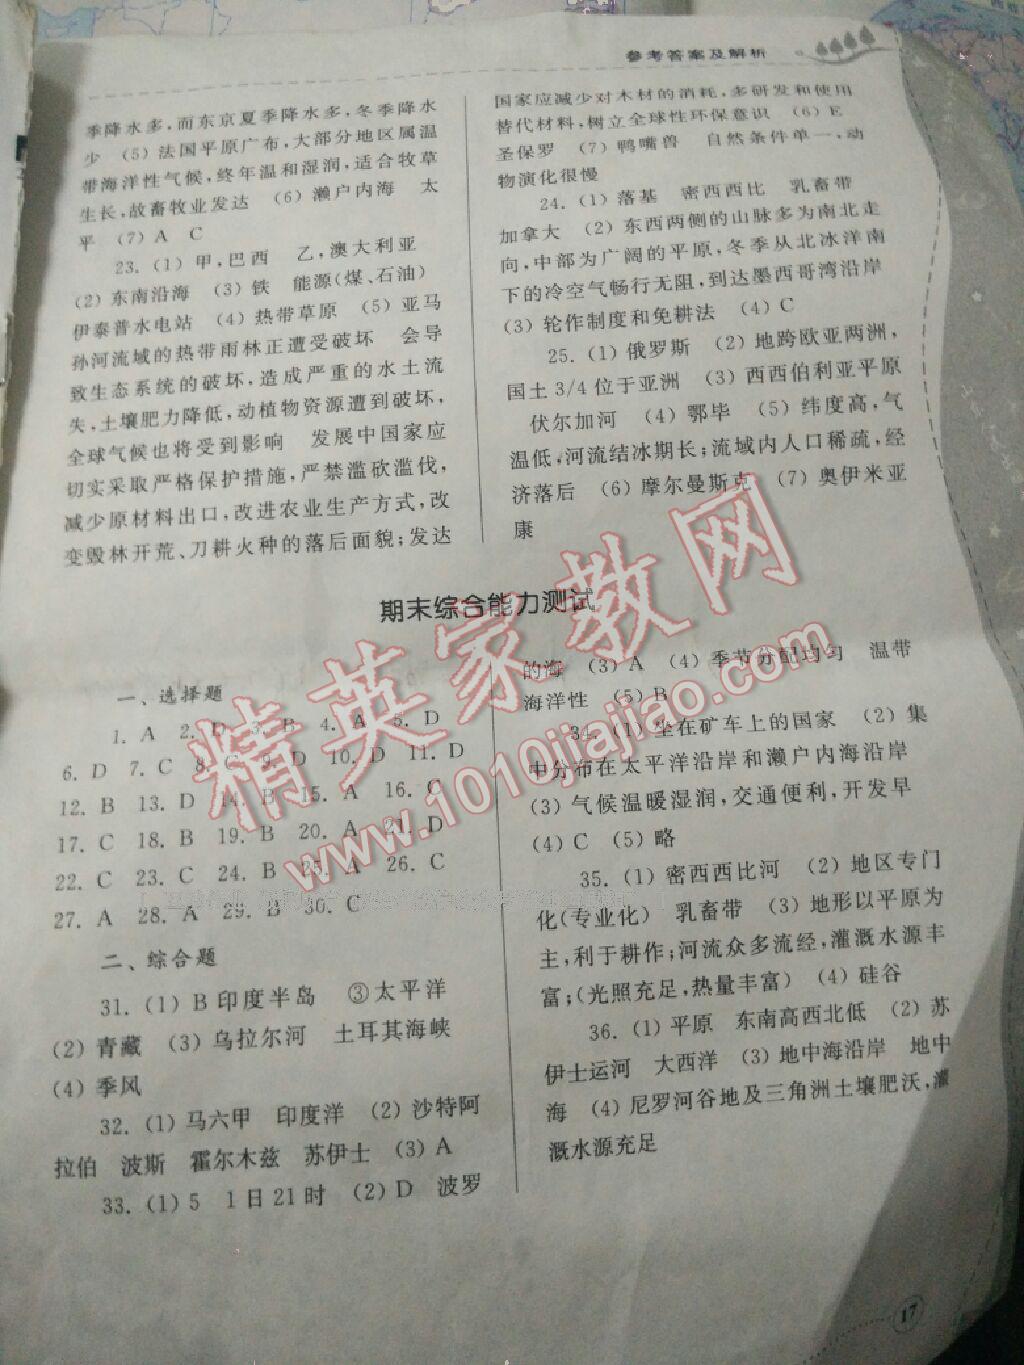 参考答案及解析
季降水多,而东京夏季降水多,冬季降水
少 (5)法国平原广布,大部分地区属温
带海洋性气候,终年温和湿润,适合牧草
生长,故畜牧业发达 (6)濑户内海 太
平 (7)A C
23. (1)甲,巴西 乙,澳大利亚
(2)东南沿海 (3)铁 能源(煤、石油)
伊泰普水电站 (4)热带草原 (5)亚马
孙河流域的热带雨林正遭受破坏 会导
致生态系统的破坏,造成严重的水土流
失,土壤肥力降低,动植物资源遭到破坏,
全球气候也将受到影响 发展中国家应
切实采取严格保护措施,严禁滥砍滥伐,
减少原材料出口,改进农业生产方式,改
变毁林开荒、刀耕火种的落后面貌;发达
国家应减少对木材的消耗,多研发和使用
替代材料,树立全球性环保意识 (6)E
圣保罗 (7)鸭嘴兽 自然条件单一,动
物演化很慢
24. (1)落基 密西西比 乳畜带
加拿大 (2)东西两侧的山脉多为南北走
向,中部为广阔的平原,冬季从北冰洋南
下的冷空气畅行无阻,到达墨西哥湾沿岸
(3)轮作制度和免耕法 (4)C
25. (1)俄罗斯 (2)地跨欧亚两洲,
国土3/4位于亚洲 (3)西西伯利亚平原
伏尔加河 (4)鄂毕 (5)纬度高,气
温低,河流结冰期长;流域内人口稀疏,经
济落后 (6)摩尔曼斯克 (7)奥伊米亚
康
期末综合能力测试
一、选择题
1. A 2. D 3. B 4. A 5. D
6. D 7. C 8. C 9. D 10. D 11. D
12. B 13. D 14. B 15. A 16. C
17. C 18. B 19. B 20. A 21. D
22. C 23. C 24. B 25. A 26. C
27. A 28. A 29. B 30. C
二、综合题
31. (1)B印度半岛 ③太平洋
(2)青藏 (3)乌拉尔河 土耳其海峡
(4)季风
32. (1)马六甲 印度洋 (2)沙特阿
拉伯 波斯 霍尔木兹 苏伊士 (3)A
33. (1)5 1日21时 (2)D 波罗
的海 (3)A (4)季节分配均匀 温带
海洋性 (5)B
34. (1)坐在矿车上的国家 (2)集
中分布在太平洋沿岸和濑户内海沿岸
(3)气候温暖湿润,交通便利,开发早
(4)C (5)略
35. (1)密西西比河 (2)地区专门
化(专业化) 乳畜带 (3)地形以平原为
主,利于耕作;河流众多流经,灌溉水源丰
富;(光照充足,热量丰富) (4)硅谷
36. (1)平原 东南高西北低 (2)苏
伊士运河 大西洋 (3)地中海沿岸 地中
海 (4)尼罗河谷地及三角洲土壤肥沃,灌
溉水源充足
精英家教网
www.1010jiajiao.com
17